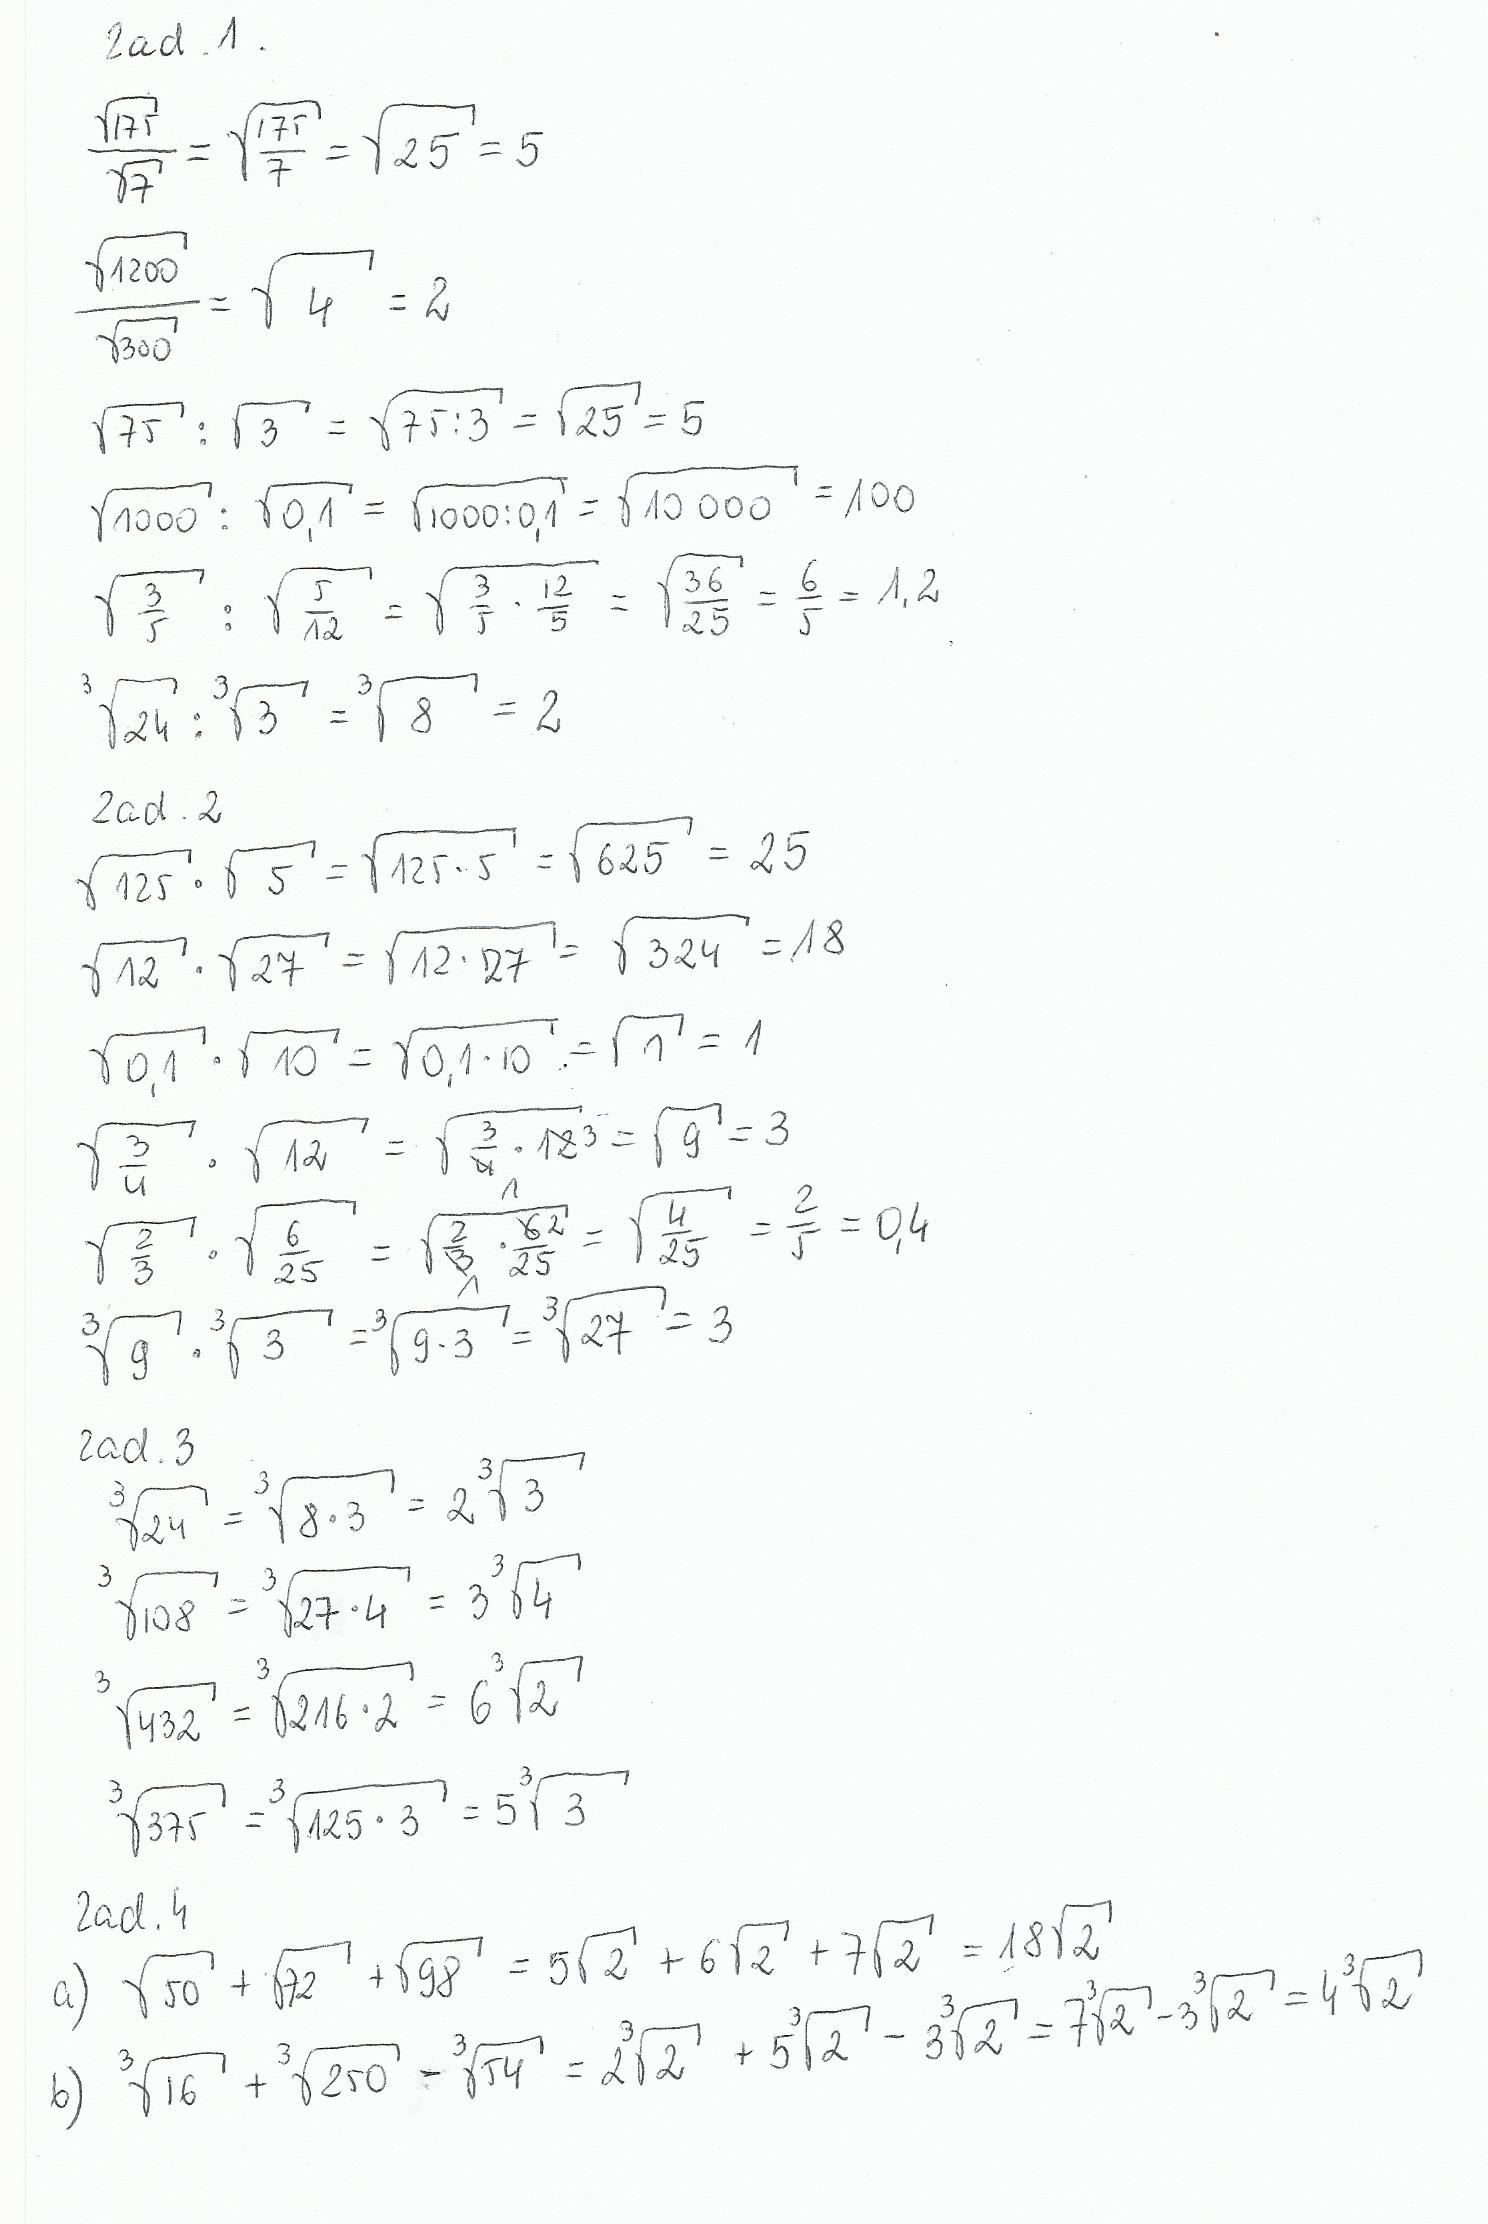 Zad. 1.
√175/√7 = √(175/7) = √25 = 5
√1200/√300 = √4 = 2
√75 : √3 = √(75:3) = √25 = 5
√1000 : √0,1 = √(1000:0,1) = √10 000 = 100
√(3/5) : √(5/12) = √(3/5 · 12/5) = √(36/25) = 6/5 = 1,2
³√24 : ³√3 = ³√8 = 2
Zad. 2
√125 · √5 = √(125·5) = √625 = 25
√12 · √27 = √(12·27) = √324 = 18
√0,1 · √10 = √(0,1·10) = √1 = 1
√(3/4) · √12 = √(3/4 1 · 12 3) = √9 = 3
√(2/3) · √(6/25) = √(2/3 1 · 6 2/25) = √(4/25) = 2/5 = 0,4
³√9 · ³√3 = ³√(9·3) = ³√27 = 3
Zad. 3
³√24 = ³√(8·3) = 2³√3
³√108 = ³√(27·4) = 3³√4
³√432 = ³√(216·2) = 6³√2
³√375 = ³√(125·3) = 5³√3
Zad. 4
a) √50 + √72 + √98 = 5√2 + 6√2 + 7√2 = 18√2
b) ³√16 + ³√250 - ³√54 = 2³√2 + 5³√2 - 3³√2 = 7³√2 - 3³√2 = 4³√2